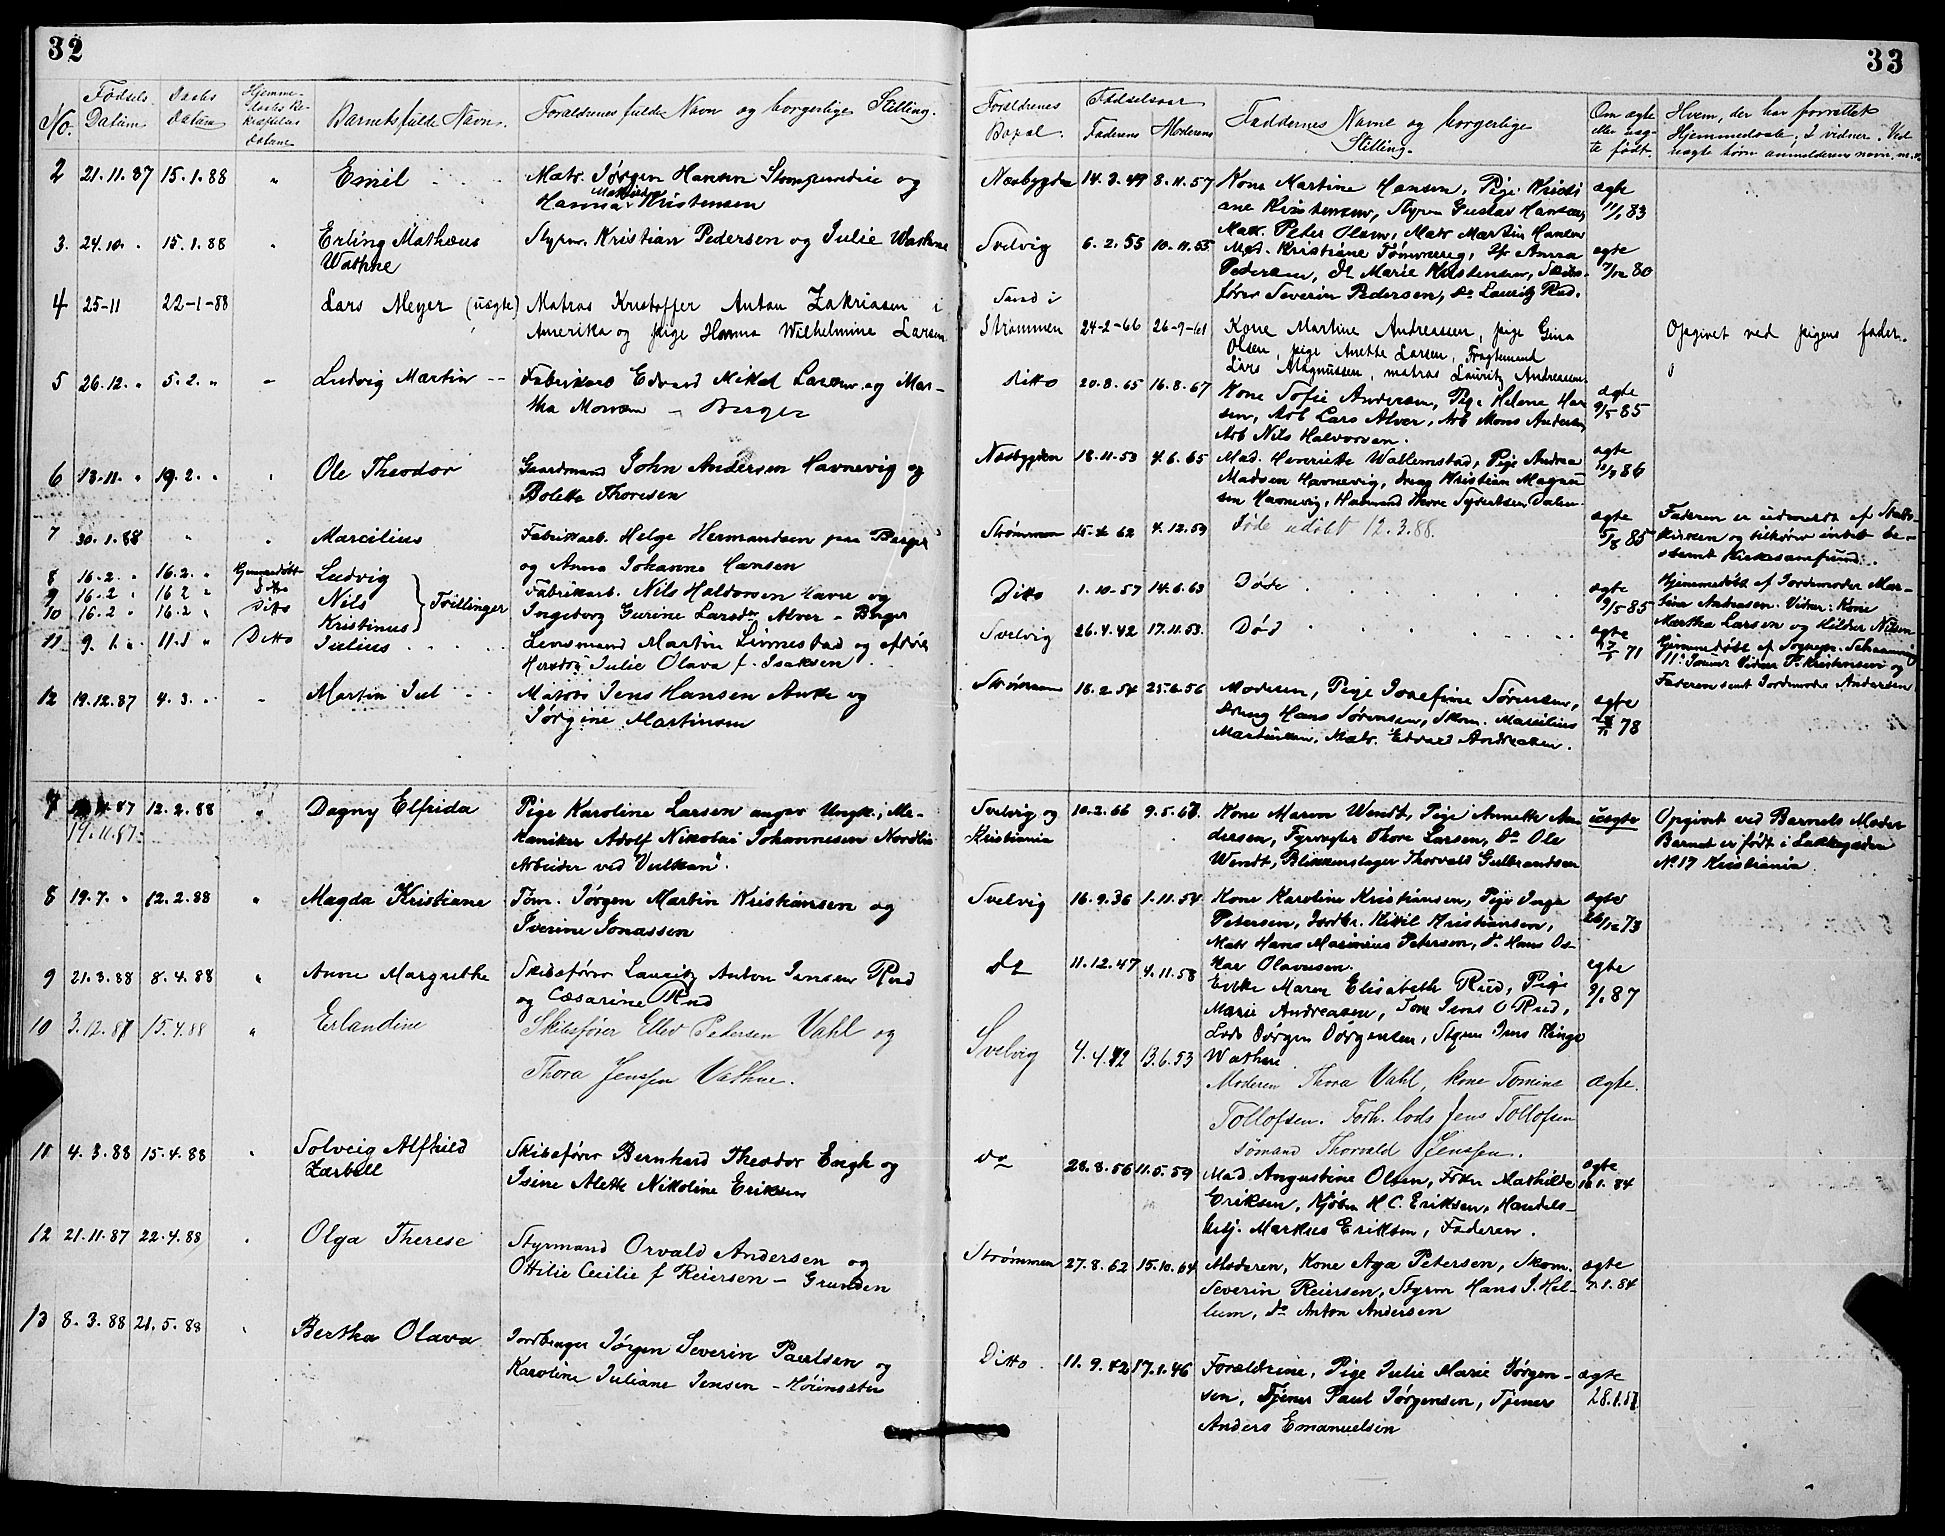 32
No.
Fødsels Datum
Daabs Datum
Hjemmedaabs Datum
Barnets fulde Navn.
Forældrenes fulde Navn og borgerlige Stilling.
2 21.11.87 15.1.88 " Emil Matr. Jørgen Hansen og
Hanna Kristensen
3. 24.10. " 15.1.88 " Erling Mathæus Styrm. Kristian Pedersen og Julie Wathne
Wathne
4 25-11 22-1-88 Lars Meyer (uægte) Matros Kristoffer Anton Zakriasen i
Amerika og pige Hanna Wilhelmine Larsen
5 26.12. " 5.2. " " Ludvig Martin Fabrikarb Edvard Mikal Larsen og Mar-
tha Monsen - Berger
6 13.11. " 19.2. " " Ole Theodor Gaardmand John Andersen Havnevig og
Bolette Thoresen
7 30.1.88 " " Marcilius Fabrikarb. Helge Hermandsen paa Berger
og Anna Johanne Hansen
8 16.2. " 16.2. " Hjemmedøbt Ludvig Fabrikarb. Nils Haldorsen Havre og
9 16.2 " 16.2 " Ditto Nils } Trillinger
10 16.2 " 16.2 " Ditto Kristinus Ingeborg Gurine Larsdr Alver - Berger
11 9.1. " 11.1 " Ditto Julius Lensmand Martin Linnestad og afdøe
Hustru Julie Olava f. Isaksen
12 19.12.87 4.3. " " Martin Jul Matros Jens Hansen Anke og
Jørgine Martinsen
7 12.2.88 " Dagny Elfrida Pige Karoline Larsen angiv Ungk., Me-
19.11.87. kaniker Adolf Nikolai Johannesen Nordlie
Arbeider ved "Vulkan".
8 19.7. " 12.2.88 " Magda Kristiane Tøm. Jørgen Martin Kristiansen og
Iverine Jonassen
9 21.3.88 8.4.88 " Anne Margrethe Skibsfører Lauritz Anton Jensen Rud
og Cæsarine Rud
10 3.12.87 15.4.88 " Erlandine Skibsfører Ellev Pedersen Vahl og
Thora Jenssen Vathne.
11 4.3.88 15.4.88 " Solveig Alfhild Skibsfører Bernhard Theodor Engh og
Isine Alette Nikoline Eriksen
12 21.11.87 22.4.88 " Olga Therese Styrmand Orvald Andersen og
Ottilie Cecilie f Reiersen - Grunden
13 8.3.88 21.5.88 " Bertha Olava Jordbruger Jørgen Severin Paulsen og
Karoline Juliane Jensen - Höinsæter
33
Forældrenes Bopæl.
Fødselsaar
Faderens Moderens
Faddernes Navne og borgerlige Stilling.
Om ægte eller uægte født.
Hvem, der har forrettet
Hjemmedaab; 2 vidner. Ved
uægte børn anmelderens navn, m.v.
Næsbygden 14.3.49 8.11.57 Kone Martine Hansen, Pige Kristi
ane Kristensen, Styrm Gustav Hansen, ægte 11/1 83
Matr. Peter Olsen, Matr Martin Hansen
Svelvig 6.2.55 10.11.55 Mad. Kristiane Tømmereg, Anna ægte 7/12 80
Pedersen, Dt Marie Kristensen, Skibs-
fører Severin Pedersen, do Lauritz Rud.
Sand i
Strømmen 24-2-66 26-9-61 Kone Martine Andreassen, pige Gina Opgivet ved pigens fader.
Olsen, pige Anette Larsen, Fragtemand
Lars Magnussen, matros Lauritz Andreasen.
Ditto 20.8.65 16.8.67 Kone Sofie Andersen, Pige Helene Han ægte 9/5 85
sen, Arb Lars Alver, Arb Mons Andersen
Arb Nils Halvorsen.
Næsbygden 18.11.53 4.6.65 Mad. Henriette Wallemstad, Pige Andrea ægte 12/9 86
Madsen Havnevig, dreng Kristian Magnu-
sen Havnevig, Husmand Thore Syvertsen Dalen
Strømmen 15.4 62 4.12.59 Døde udøbt 12.3.88. ægte 5/8 85 Faderen er udmeldt af Stats-
kirken og tilhører intet be-
stemt Kirkesamfund.
Ditto 1.10.57 14.6.63 Døde ægte 9/5 85 Hjemmedøbt af Jordemoder Mar-
tina Andreasen. Vidner: Kone
Martha Larsen og Hilder Nilsen
Svelvig 26.4.42 17.11.53. Død ægte 71 Hjemmedøbt af Sognepr. Schanning
11 Januar Vidner P. Kristensen og
Faderen samt Jordemoder Andersen
Strømmen 18.2.54 25.6.56 Moderen, Pige Josefine Sørensen, ægte 78
Dreng Hans Sørensen, Skom. Marcilius
Martinsen, Matr. Edvard Andreasen.
Svelvig og 10.2.66 9.5.67. Kone Maren Wendt, Pige Annette An uægte Opgivet ved Barnets Moder
Kristiania dersen, Fyrvogter Thore Larsen, do Ole Barnet er født i Lakkegaden
Wendt, Blikkenslager Thorvald Gulbrandsen No 17 Kristiania.
Svelvig 16.9.36 1.11.54 Kone Karoline Kristiansen, Pige Inga ægte 26/12 73
Petersen, Jordbr. Kittil Kristiansen,
Matr Hans Maximius Petersen, do Hans Os-
kar Olavesen.
do 11.12.47 4.11.58 Enke Maren Elisabeth Rud, Pige ægte 87
Marie Andreasen, Tøm Jens O Rud,
Lods Jørgen Jörgensen, Styrm Jens Klinge
Wathne.
Svelvig 4.4.42 13.6.53 Moderen Thora Vahl, kone Tomine ægte.
Tollofsen. Forh. lods Jens Tollofsen
sömand Thorvald Jenssen.
do 28.8.56 11.5.59 Mad Angustine Olsen, Frkn Mathilde ægte 18.1.84
Eriksen, Kjöbm H.C. Eriksen, Handels-
betj. Markus Eriksen, Faderen.
Strømmen 27.8.62 15.10.64 Moderen, Kone Aga Petersen, Skom. ægte 7.1.84
Severin Reiersen, Styrm Hans J. Hel-
lum, do Anton Andersen
Ditto 11.9.42 17.1.46 Forældrene, Pige Julie Marie Jørgen- ægte
sen, Tjener Paul Jörgensen, Tjener
Anders Emanuelsen